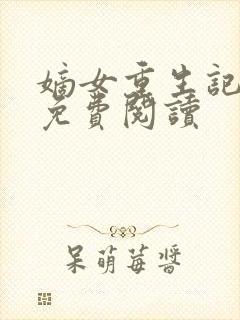 嫡女重生記
免費閱讀
呆萌莓醬